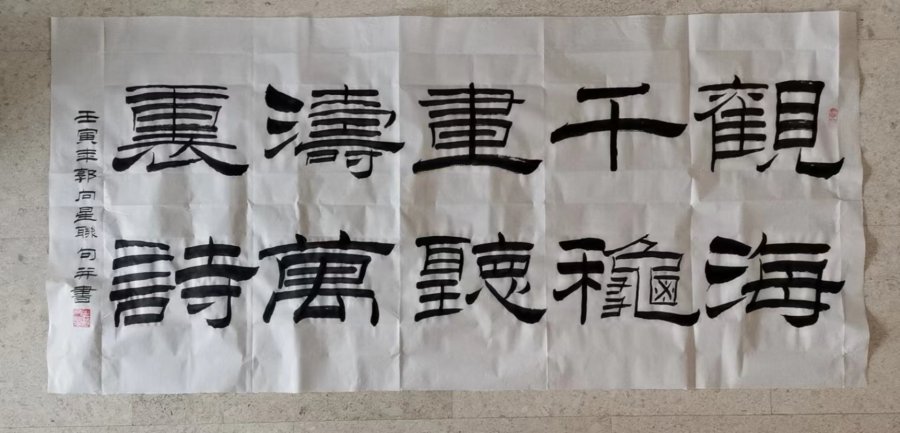 觀海
千龝
畫聽
濤萬
裏詩
壬寅年郭向星聯句并書